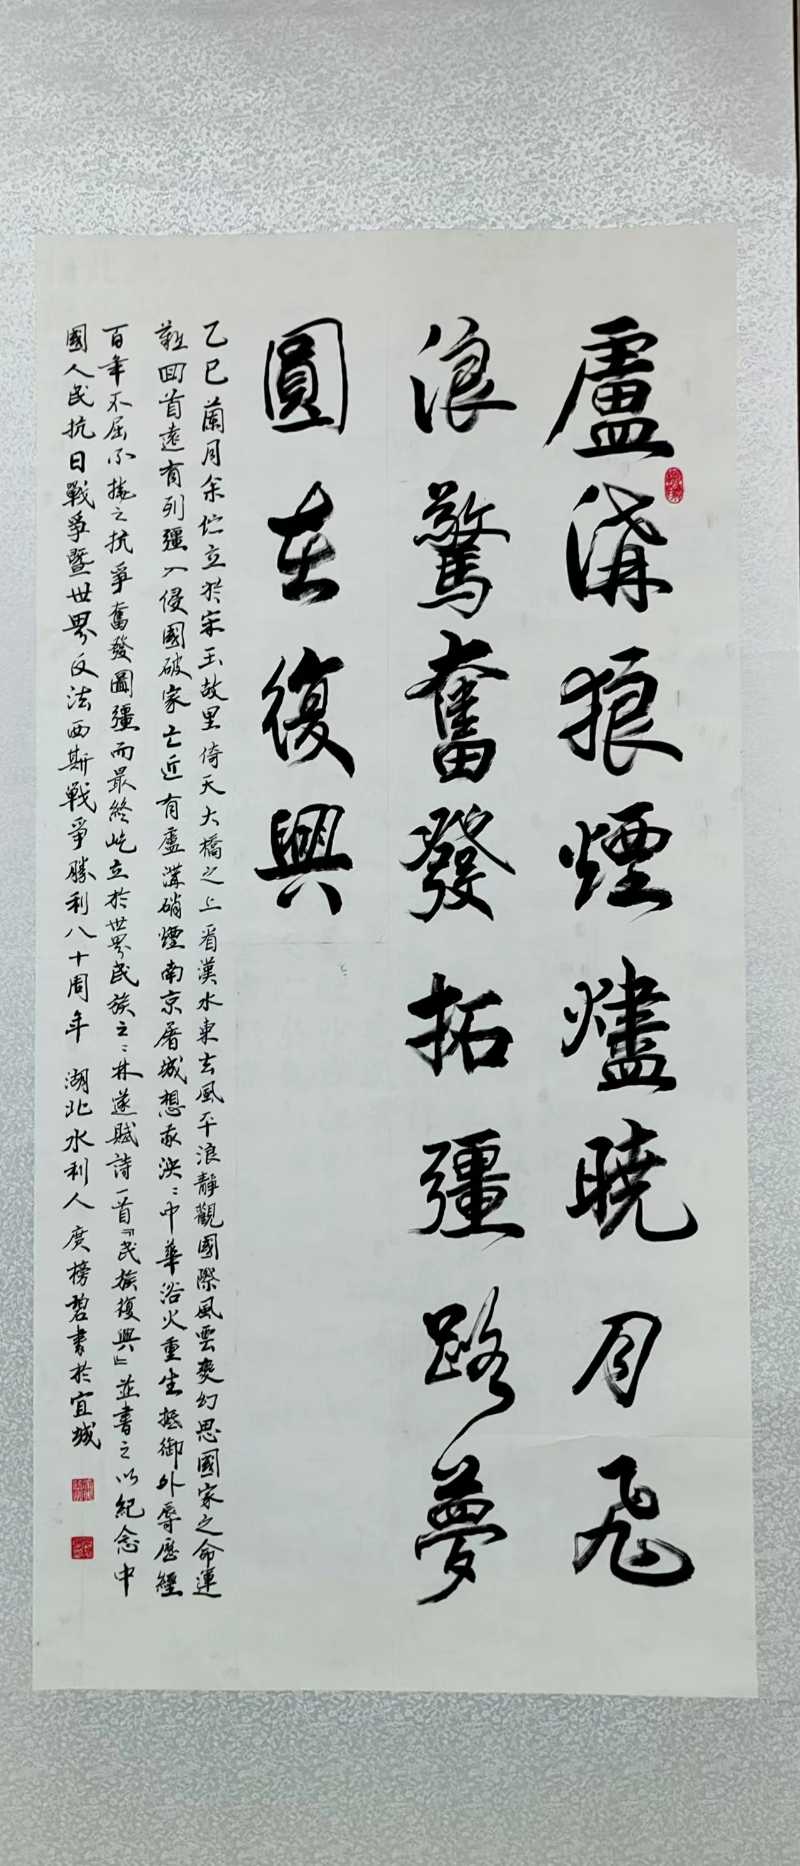 盧溝狼煙燼曉月飛
浪驚奮發拓疆路夢
圓在復興
乙巳蘭月余伫立於宋玉故里倚天大橋之上看漢水東去風平浪靜觀國際風雲變幻思國家之命運
艱回首遠有列彊入侵國破家亡近有盧溝硝煙南京屠城想我泱〻中華浴火重生抵御外辱歷經
百年不屈不撓之抗爭奮發圖彊而最終屹立於世界民族之〻林遂賦詩一首『民族復興』並書之以紀念中
國人民抗日戰爭暨世界反法西斯戰爭勝利八十周年 湖北水利人 榜碧書於宜城